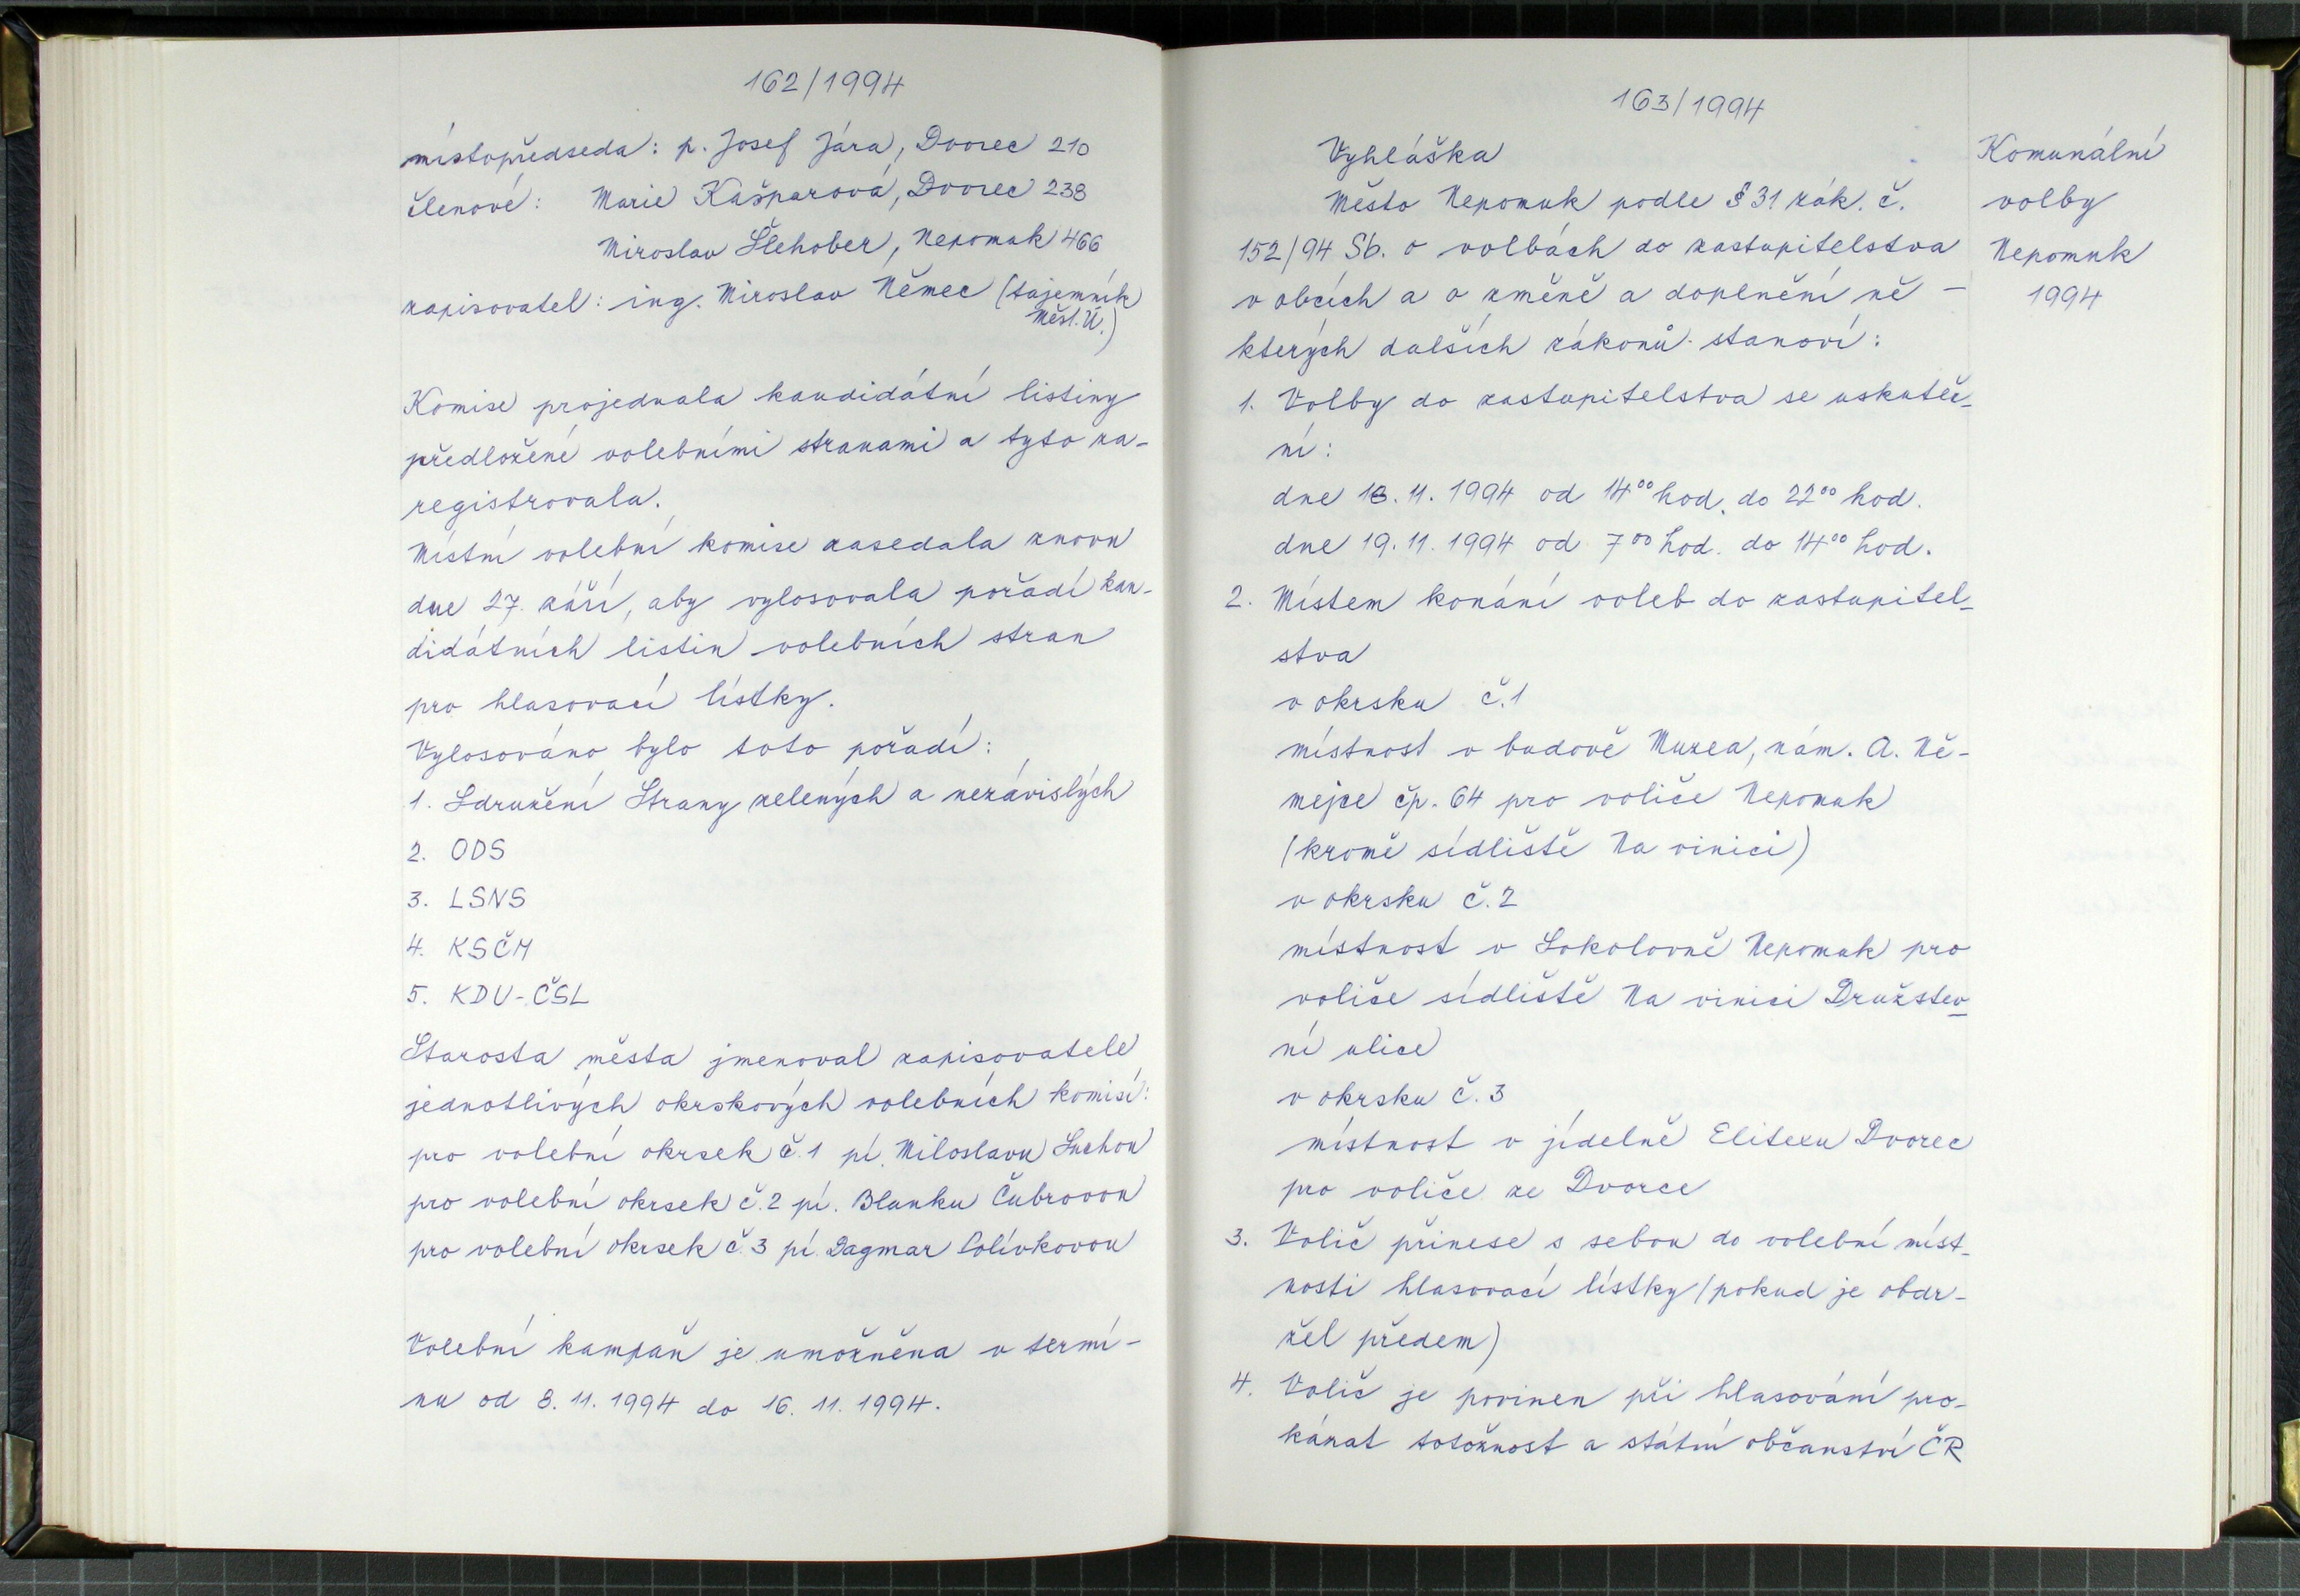 162/1994
místopředseda: p. Josef Jára, Dvorec 210
členové: Marie Kašparová, Dvorec 238
Miroslav Šlehober, Nepomuk 466
zapisovatel: ing. Miroslav Němec (tajemník
Měst. Ú.)
Komise projednala kandidátní listiny
předložené volebními stranami a tyto za-
registrovala.
Místní volební komise zasedala znovu
dne 27. září, aby vylosovala pořadí kan-
didátních listin volebních stran
pro hlasovací lístky.
Vylosováno bylo toto pořadí:
1. Sdružení Strany zelených a nezávislých
2. ODS
3. LSNS
4. KSČM
5. KDU-ČSL
Starosta města jmenoval zapisovatele
jednotlivých okrskových volebních komisí:
pro volební okrsek č. 1 pí. Miloslavu Suchou
pro volební okrsek č. 2 pí. Blanku Čubrovou
pro volební okrsek č. 3 pí. Dagmar Polívkovou
Volební kampaň je umožněna v termí-
nu od 8. 11. 1994 do 16. 11. 1994.
163/1994
Vyhláška
Město Nepomuk podle § 31 zák. č.
152/94 Sb. o volbách do zastupitelstva
v obcích a o změně a doplnění ně-
kterých dalších zákonů stanoví:
1. Volby do zastupitelstva se uskuteč-
ní:
dne 18. 11. 1994 od 14⁰⁰ hod. do 22⁰⁰ hod.
dne 19. 11. 1994 od 7⁰⁰ hod. do 14⁰⁰ hod.
2. Místem konání voleb do zastupitel-
stva
v okrsku č. 1
místnost v budově Muzea, nám. A. Ně-
mejce čp. 64 pro voliče Nepomuk
(kromě sídliště Na vinici)
v okrsku č. 2
místnost v Sokolovně Nepomuk pro
voliče sídliště Na vinici Družstev-
ní ulice
v okrsku č. 3
místnost v jídelně Elitexu Dvorec
pro voliče ze Dvorce
3. Volič přinese s sebou do volební míst-
nosti hlasovací lístky (pokud je obdr-
žel předem)
4. Volič je povinen při hlasování pro-
kázat totožnost a státní občanství ČR
Komunální
volby
Nepomuk
1994